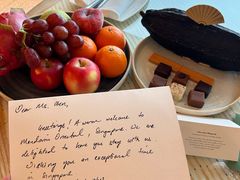 Dear Ms. Wen,
Greetings! A warm welcome to
Mandarin Oriental, Singapore. We are
delighted to have you stay with us
Wishing you an exceptional time
in Singapore.